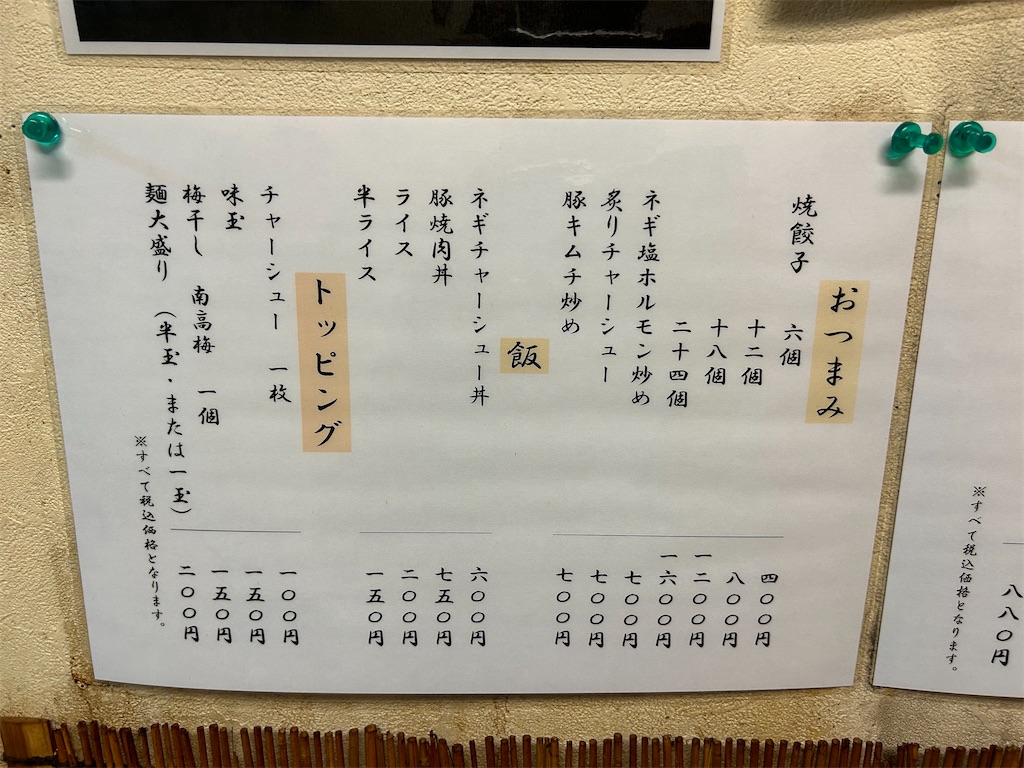 八八〇円
※すべて税込価格となります。
おつまみ
焼餃子 六個 四〇〇円
十二個 八〇〇円
十八個 一二〇〇円
二十四個 一六〇〇円
ネギ塩ホルモン炒め 七〇〇円
炙りチャーシュー 七〇〇円
豚キムチ炒め 七〇〇円
飯
ネギチャーシュー丼 六〇〇円
豚焼肉丼 七五〇円
ライス 二〇〇円
半ライス 一五〇円
トッピング
チャーシュー 一枚 一〇〇円
味玉 一五〇円
梅干し 南高梅 一個 一五〇円
麺大盛り (半玉・または一玉) 二〇〇円
※すべて税込価格となります。